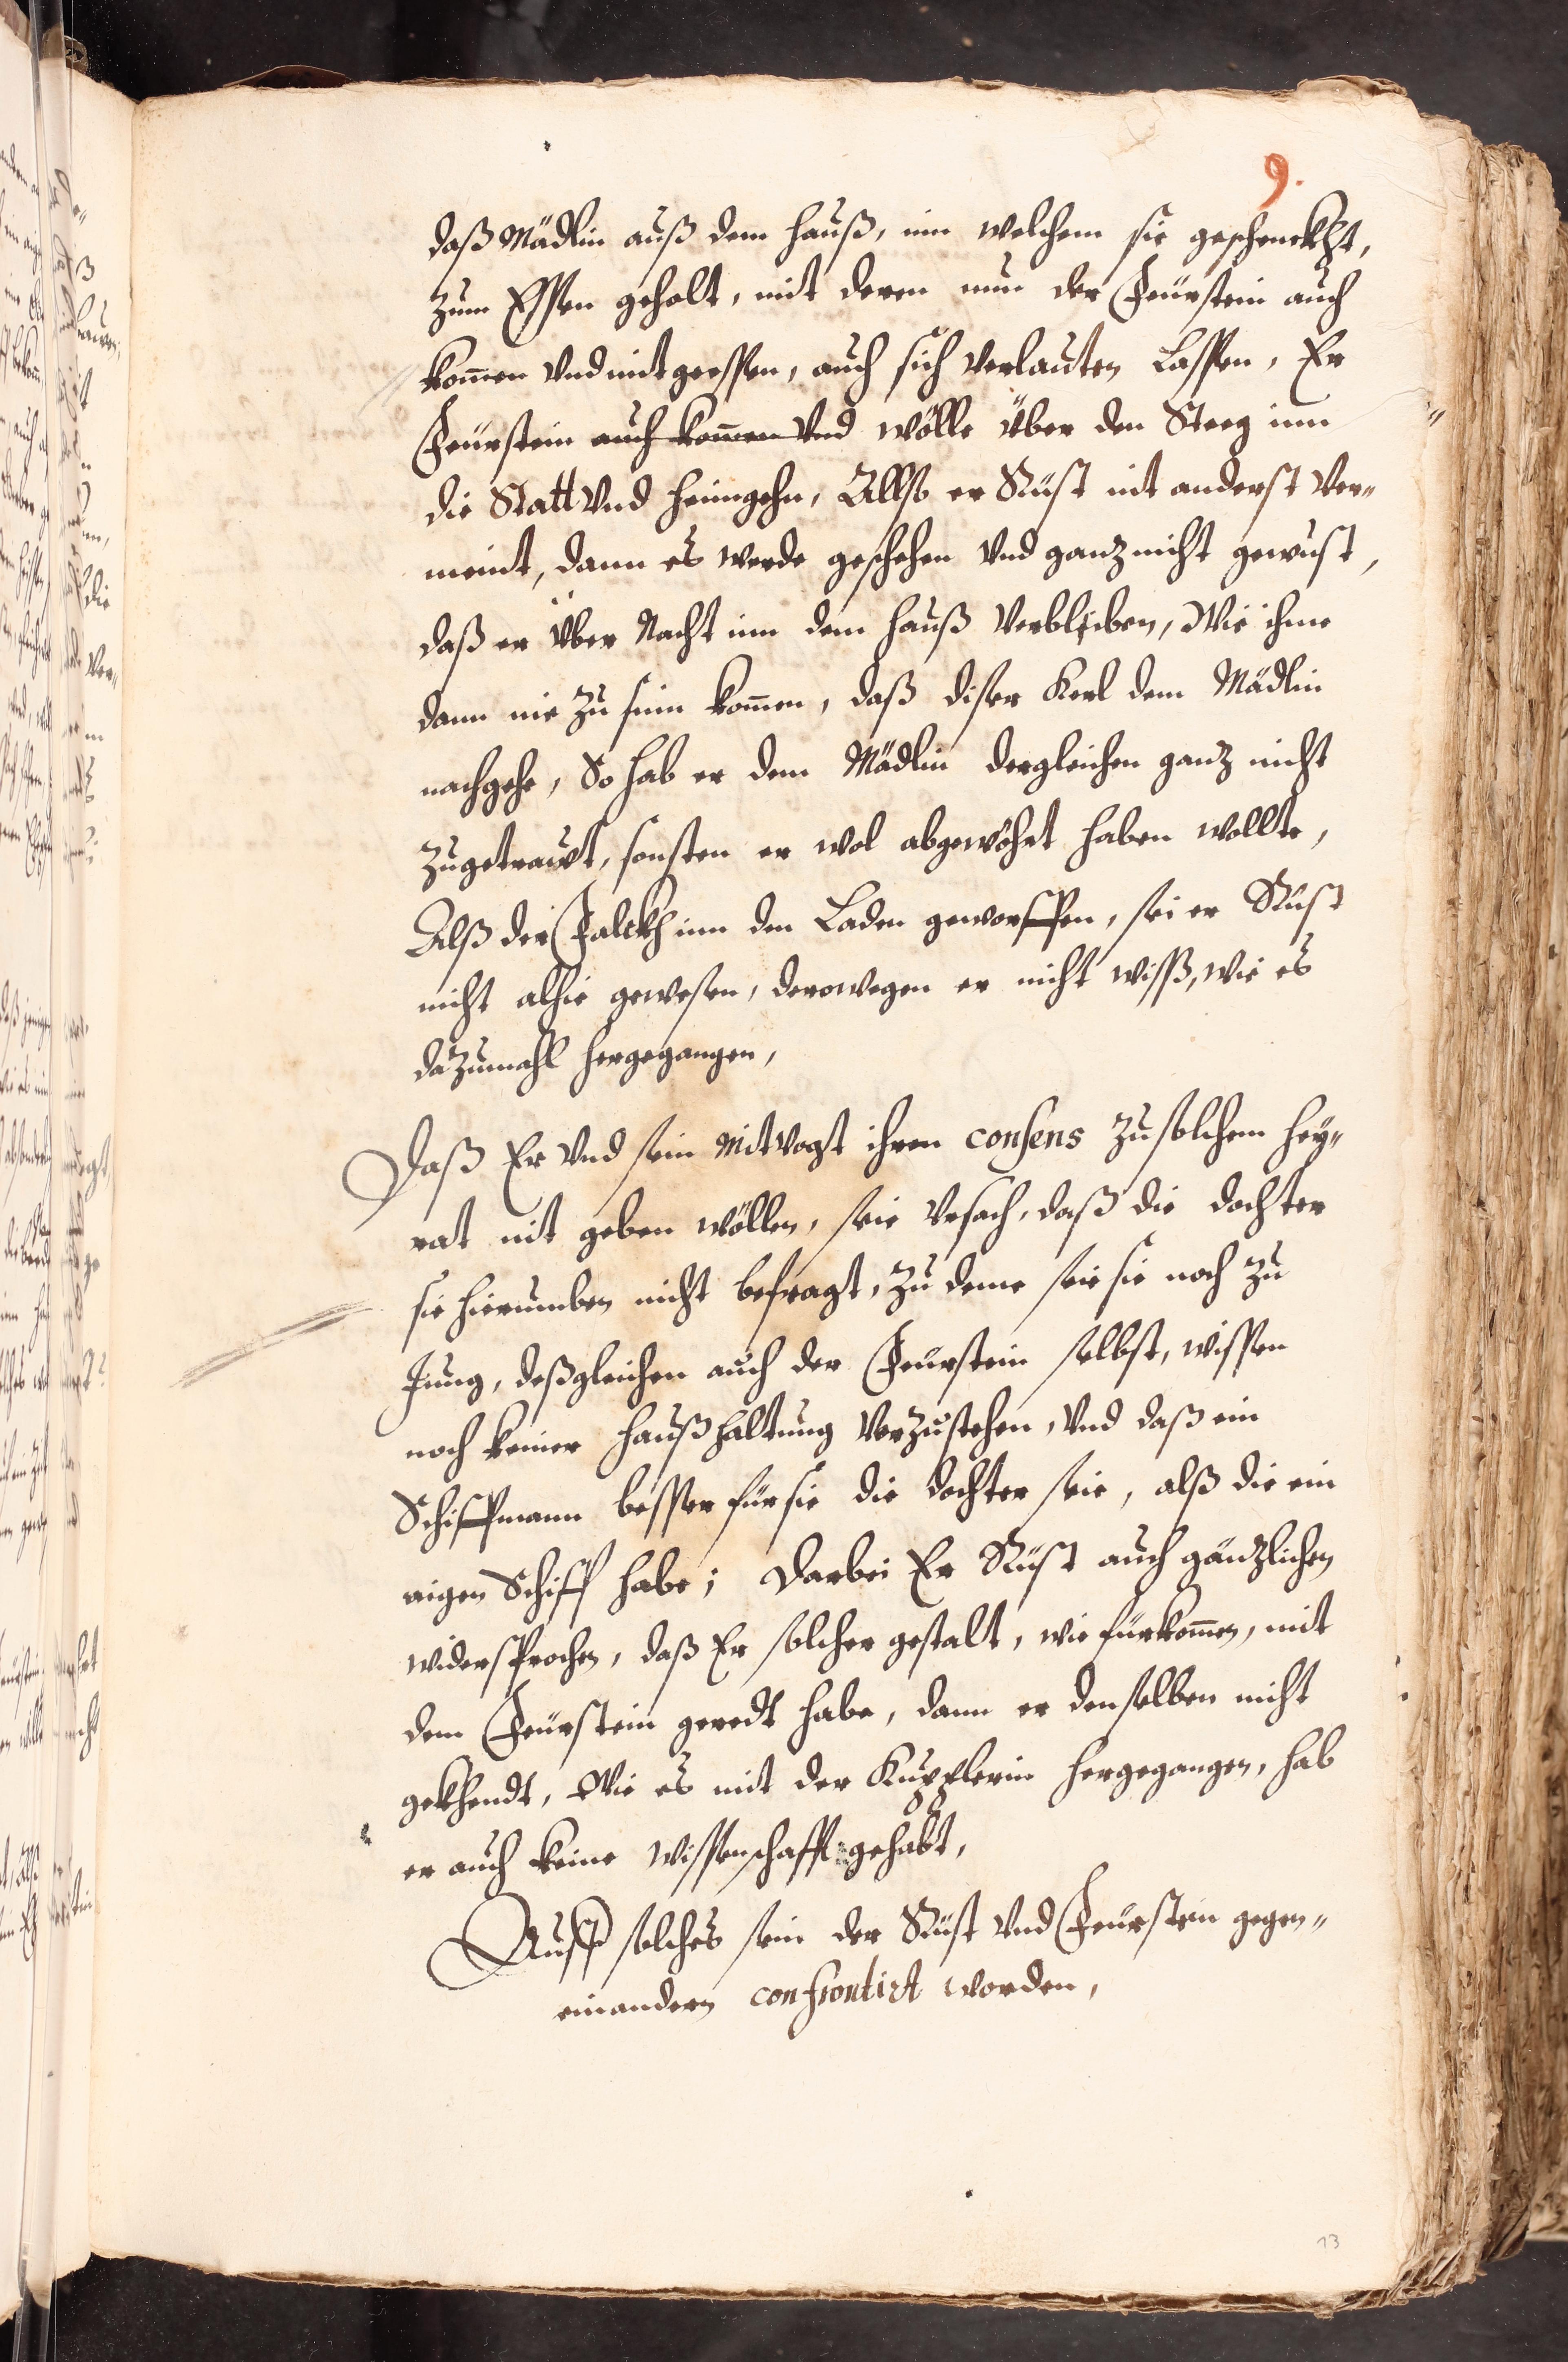 9.
daß Mädlin auß dem hauß, inn welchem sie geschenckht,
zum Essen geholt, mit deren nun der Feürstein auch
kom̄en vnd mit geessen, auch sich verlauten Lassen, Er
Feürstein auch kom̄en vnd wölle über den Steeg inn
die Statt vnd heimgehn, Allso er Rüst nit anderst ver„
meint, dann es werde geschehen vnd ganz nicht gewust,
daß er über Nacht inn dem hauß verbliben, Wie ihme
dann nie zu sinn kom̄en, daß diser Kerl dem Mädlin
nachgehe, So hab er dem Mädlin dergleichen ganz nicht
zugetrawt, sonsten er wol abgewöhrt haben wollte,
Alß der Falckh inn den Laden geworffen, sei er Rüst
nicht alhie gewesen, derowegen er nicht wiß, wie es
dazumahl hergegangen,
Daß Er vnd sein Mitvogt ihren consens zu solchem hey„
rat nit geben wöllen, seie vrsach, daß die dochter
sie hierumben nicht befragt, zu deme seie sie noch zu
Jung, deßgleichen auch der Feürstein selbst, wissen
noch keiner haußhaltung vorzustehen, vnd daß ein
Schiffmann besser für sie die dochter seie, alß die ein
aigen Schiff habe; Darbei Er Rüst auch gänzlichen
widersprochen, daß Er solcher gestalt, wie fürkom̄en, mit
dem Feürstein geredt habe, dann er denselben nicht
gekhendt, Wie es mit der Kupplerin hergegangen, hab
er auch keine wissenschafft gehabt,
Auff solches sein der Rüst vnd Feürstein gegen„
einandern confrontirt worden,
13